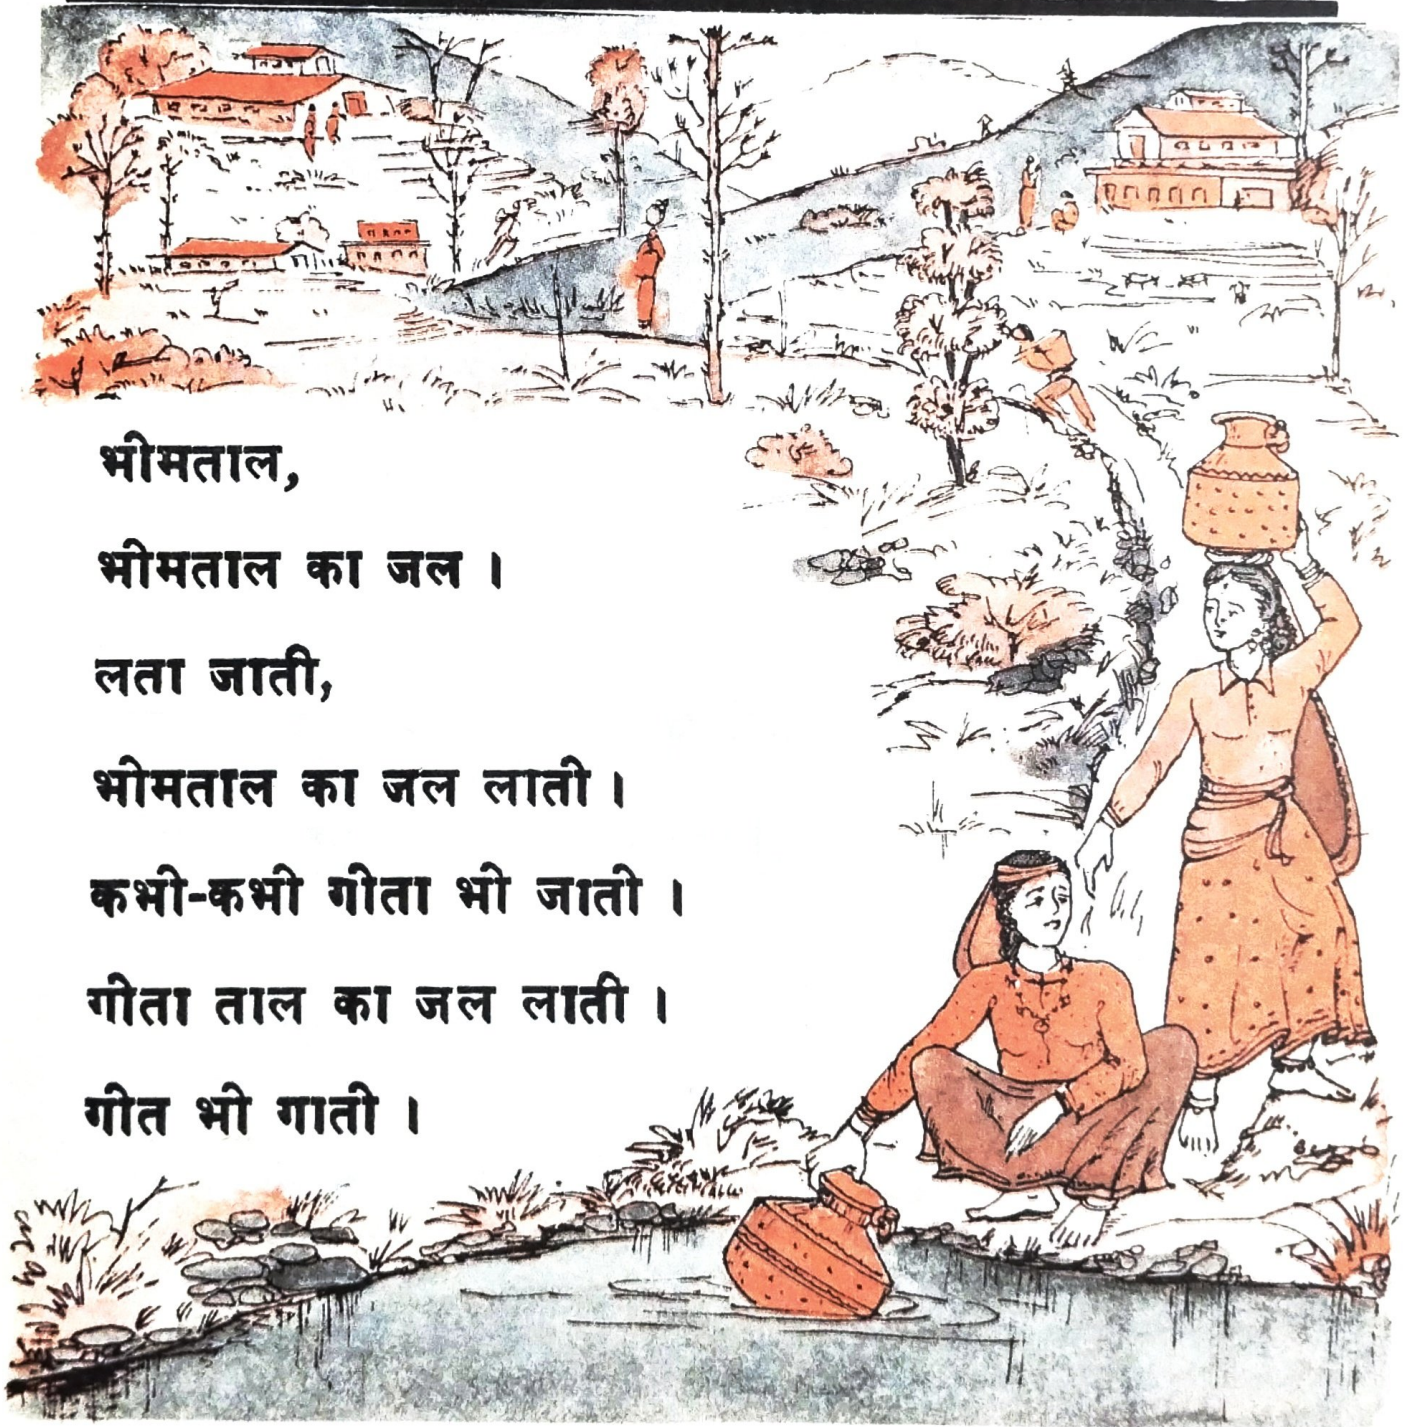 भीमताल,
भीमताल का जल ।
लता जाती,
भीमताल का जल लाती ।
कभी-कभी गीता भी जाती ।
गीता ताल का जल लाती ।
गीत भी गाती ।